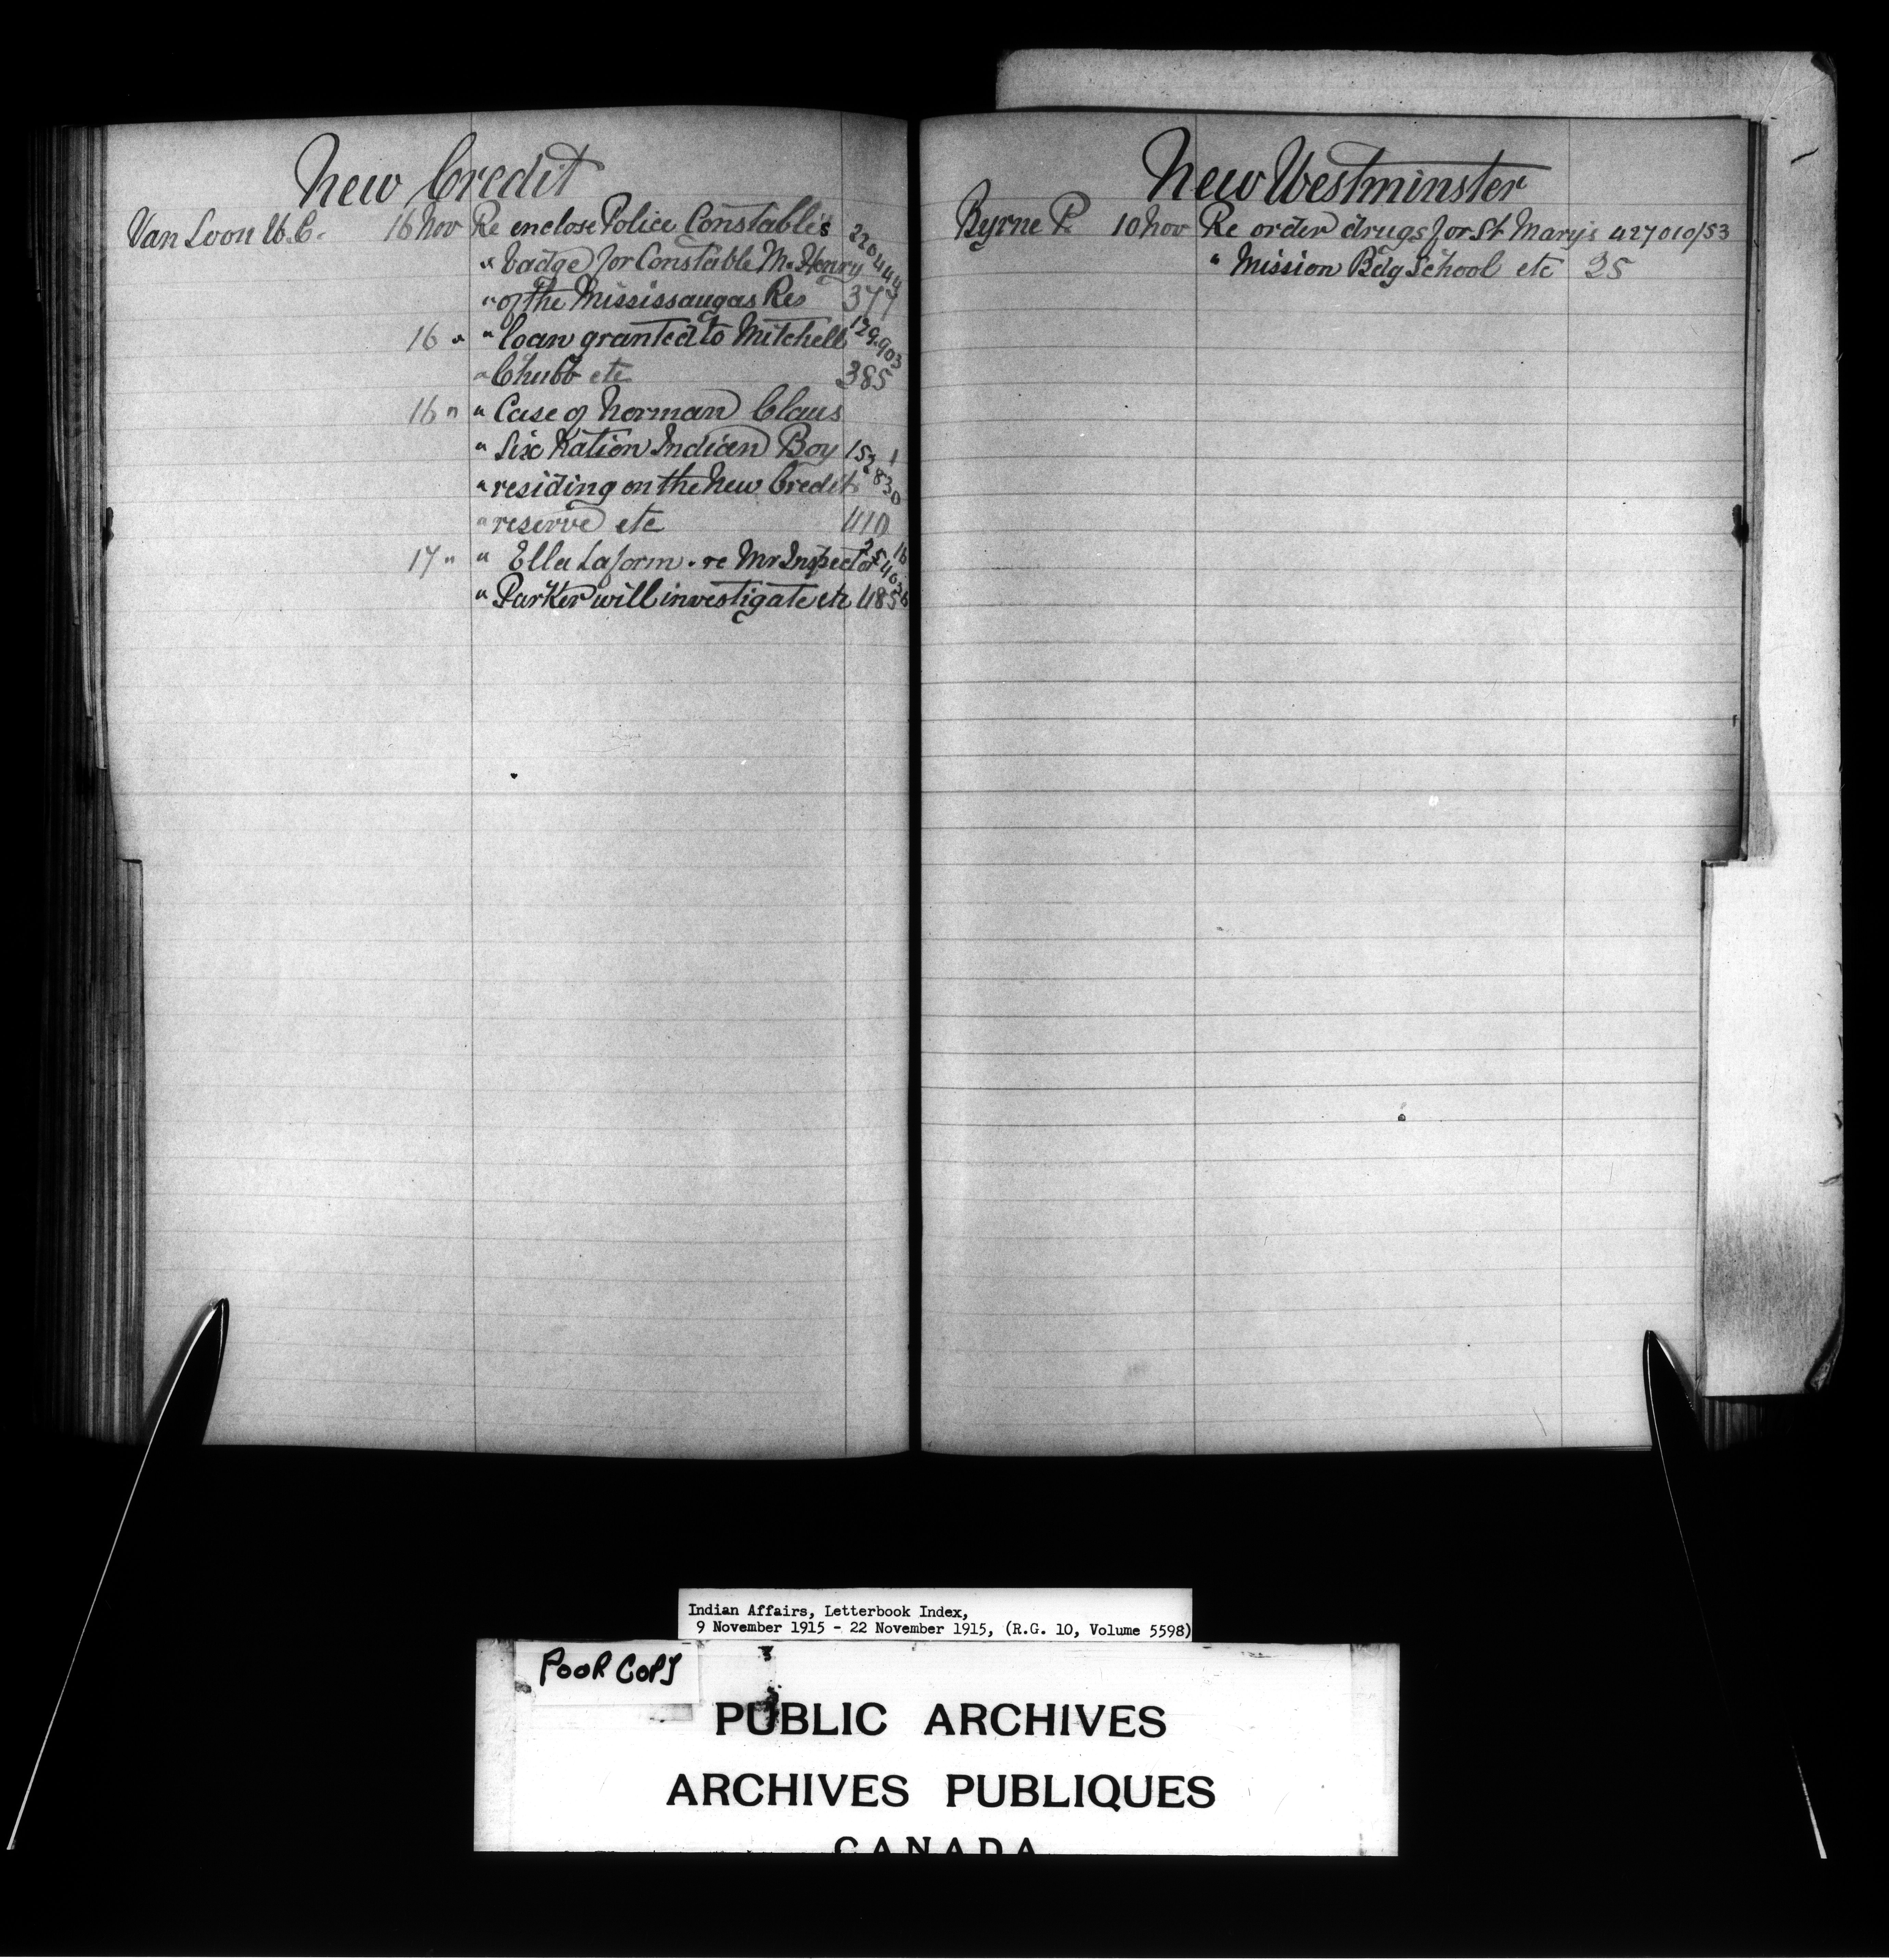 New Credit
Van Loon W. C. 16 Nov Re enclose Police Constable's 220444
" badge for Constable McHenry
" of the Mississaugas Res 377
16 " " loan granted to Mitchell 129.903
" Chubb etc 385
16 " " Case of Norman Claus
" Six Nation Indian Boy
" residing on the New Credit
" reserve etc 410
17 " " Ella Laform . re Mr Inspector
" Parker will investigate etc 485
New Westminster
Byrne P. 10 Nov Re order drugs for St Mary's 427010/53
" Mission Bdg School etc 25
Indian Affairs, Letterbook Index,
9 November 1915 - 22 November 1915, (R.G. 10, Volume 5598)
POOR COPY
PUBLIC ARCHIVES
ARCHIVES PUBLIQUES
CANADA